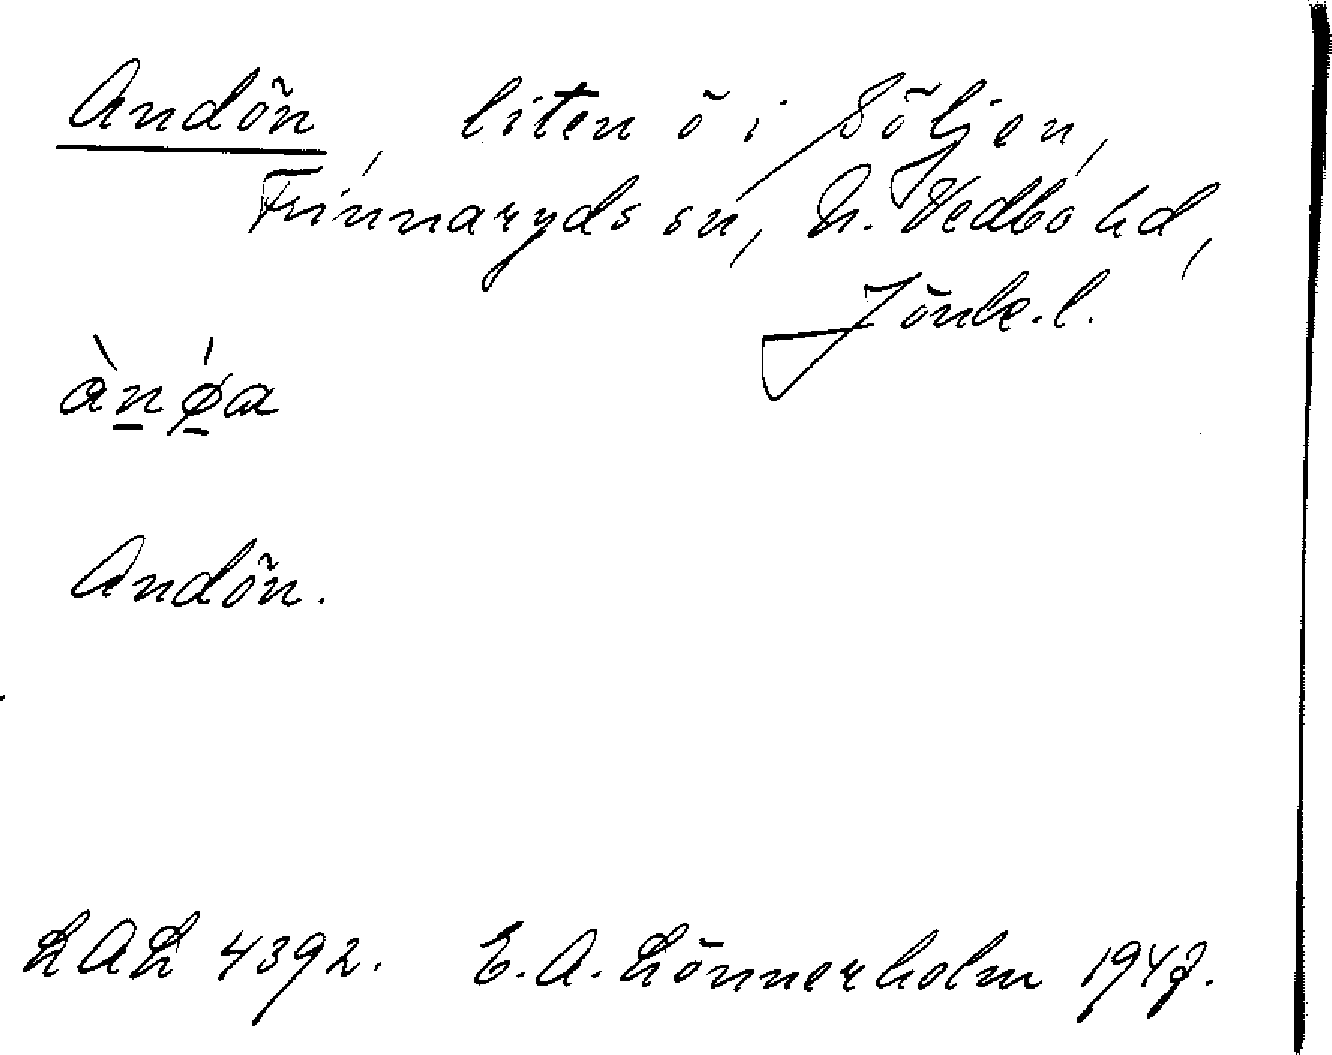 Andön, liten ö i Söljen,
Finnaryds sn, N. Vedbo hd,
Jönk. l.
ànǿa
Andön.
LAL 4392. E. A. Lönnerholm 1947.